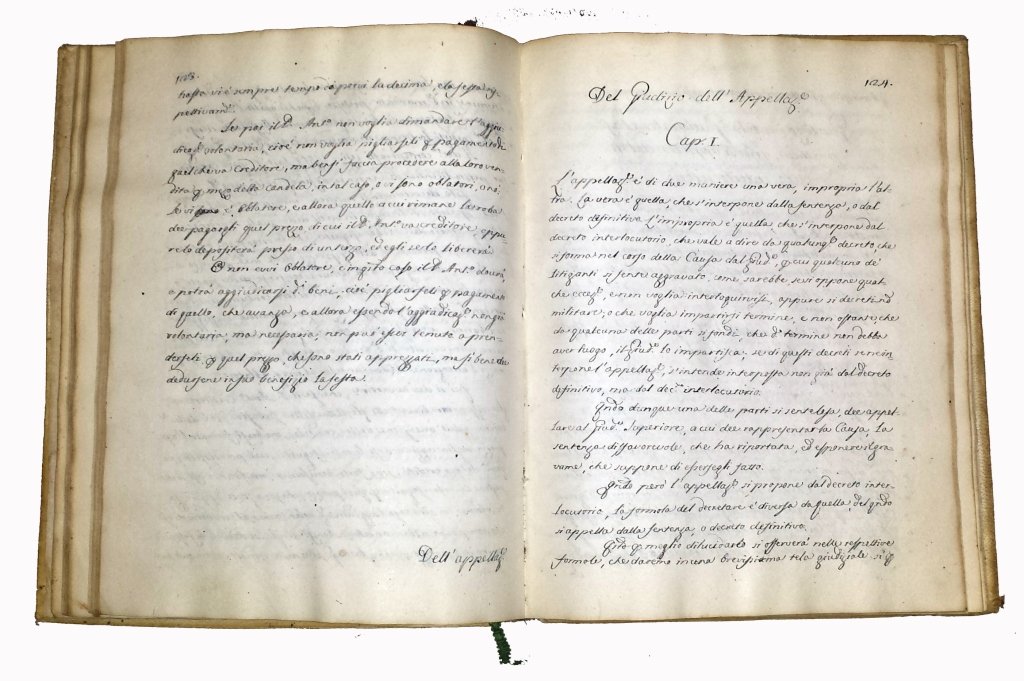 123.
hasta vi è sempre tempo da porvi la decima, e la sesta
pettivam.e
Se poi il d. Ant.o non voglia dimandare l'
volontaria, cioè non voglia pigliarseli pagamento di
quel che va creditore, ma bensì faccia procedere alla loro ven-
dita mezo della candela, in tal caso, o vi sono oblatori, o nò.
Se vi è Oblatore, e allora quello a cui rimane la roba
dee pagargli quel prezzo di cui il d. Ant.o va creditore, oppu-
re lo depositerà presso di un terzo, ed egli se lo libererà.
O non evvi Oblatore, e in q.to caso il d. Ant.o dovrà
o potrà aggiudicarsi d.i beni, cioè pigliarseli pagamento
di quello, che avanza, e allora essendo l' non già
volontaria, ma necessaria, non può esser tenuto a pren-
derseli quel prezzo, che sono stati apprezzati, ma si bene dee
dedursene in suo benefizio la sesta.
Dell' appellaz.e
124.
Del Giudizio dell' Appellaz.e
Cap. I.
L'appellaz.e è di due maniere una vera, impropria l'al-
tra. La vera è quella, che s'interpone dalla sentenza, o dal
decreto definitivo. L'impropria è quella, che s'interpone dal
decreto interlocutorio, che vale a dire da qualunq.e decreto, che
si forma nel corso della Causa dal Giud.e, cui qualcuno de'
litiganti si sente aggravato. come sarebbe se si oppone qual-
che eccez.e, e non voglia interloquirvisi, oppure si decreti
militare, o che voglia impartirsi termine, e non ostante, che
da qualcuna delle parti si fondi, che d.o termine non debba
aver luogo, il Giud.e lo impartisca, se di questi decreti se ne in-
terpone l'appellaz.e, s'intende interposta non già dal decreto
definitivo, ma dal dec.to interlocutorio.
Q.ndo dunque una delle parti si sente lesa, dee appel-
lare al Giud.e Superiore, a cui dee rappresentar la Causa, la
sentenza disfavorevole, che ha riportata, ed esponere il gra-
vame, che suppone di essersegli fatto.
Q.ndo però l'appellaz.e si propone dal decreto inter-
locutorio, la formola del decretare è diversa da quella, del q.ndo
si appella dalla sentenza, o decreto definitivo.
meglio dilucidarlo si osserverà nelle respettive
formole, che daremo in una brevissima tela giudiziale si